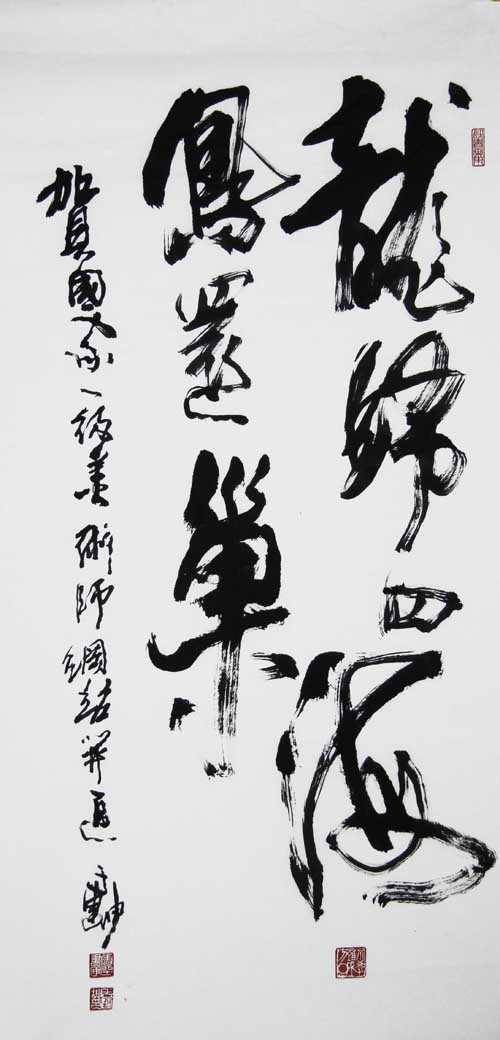 龍歸四海
鳳還巢
賀國家一級美術師網站開通